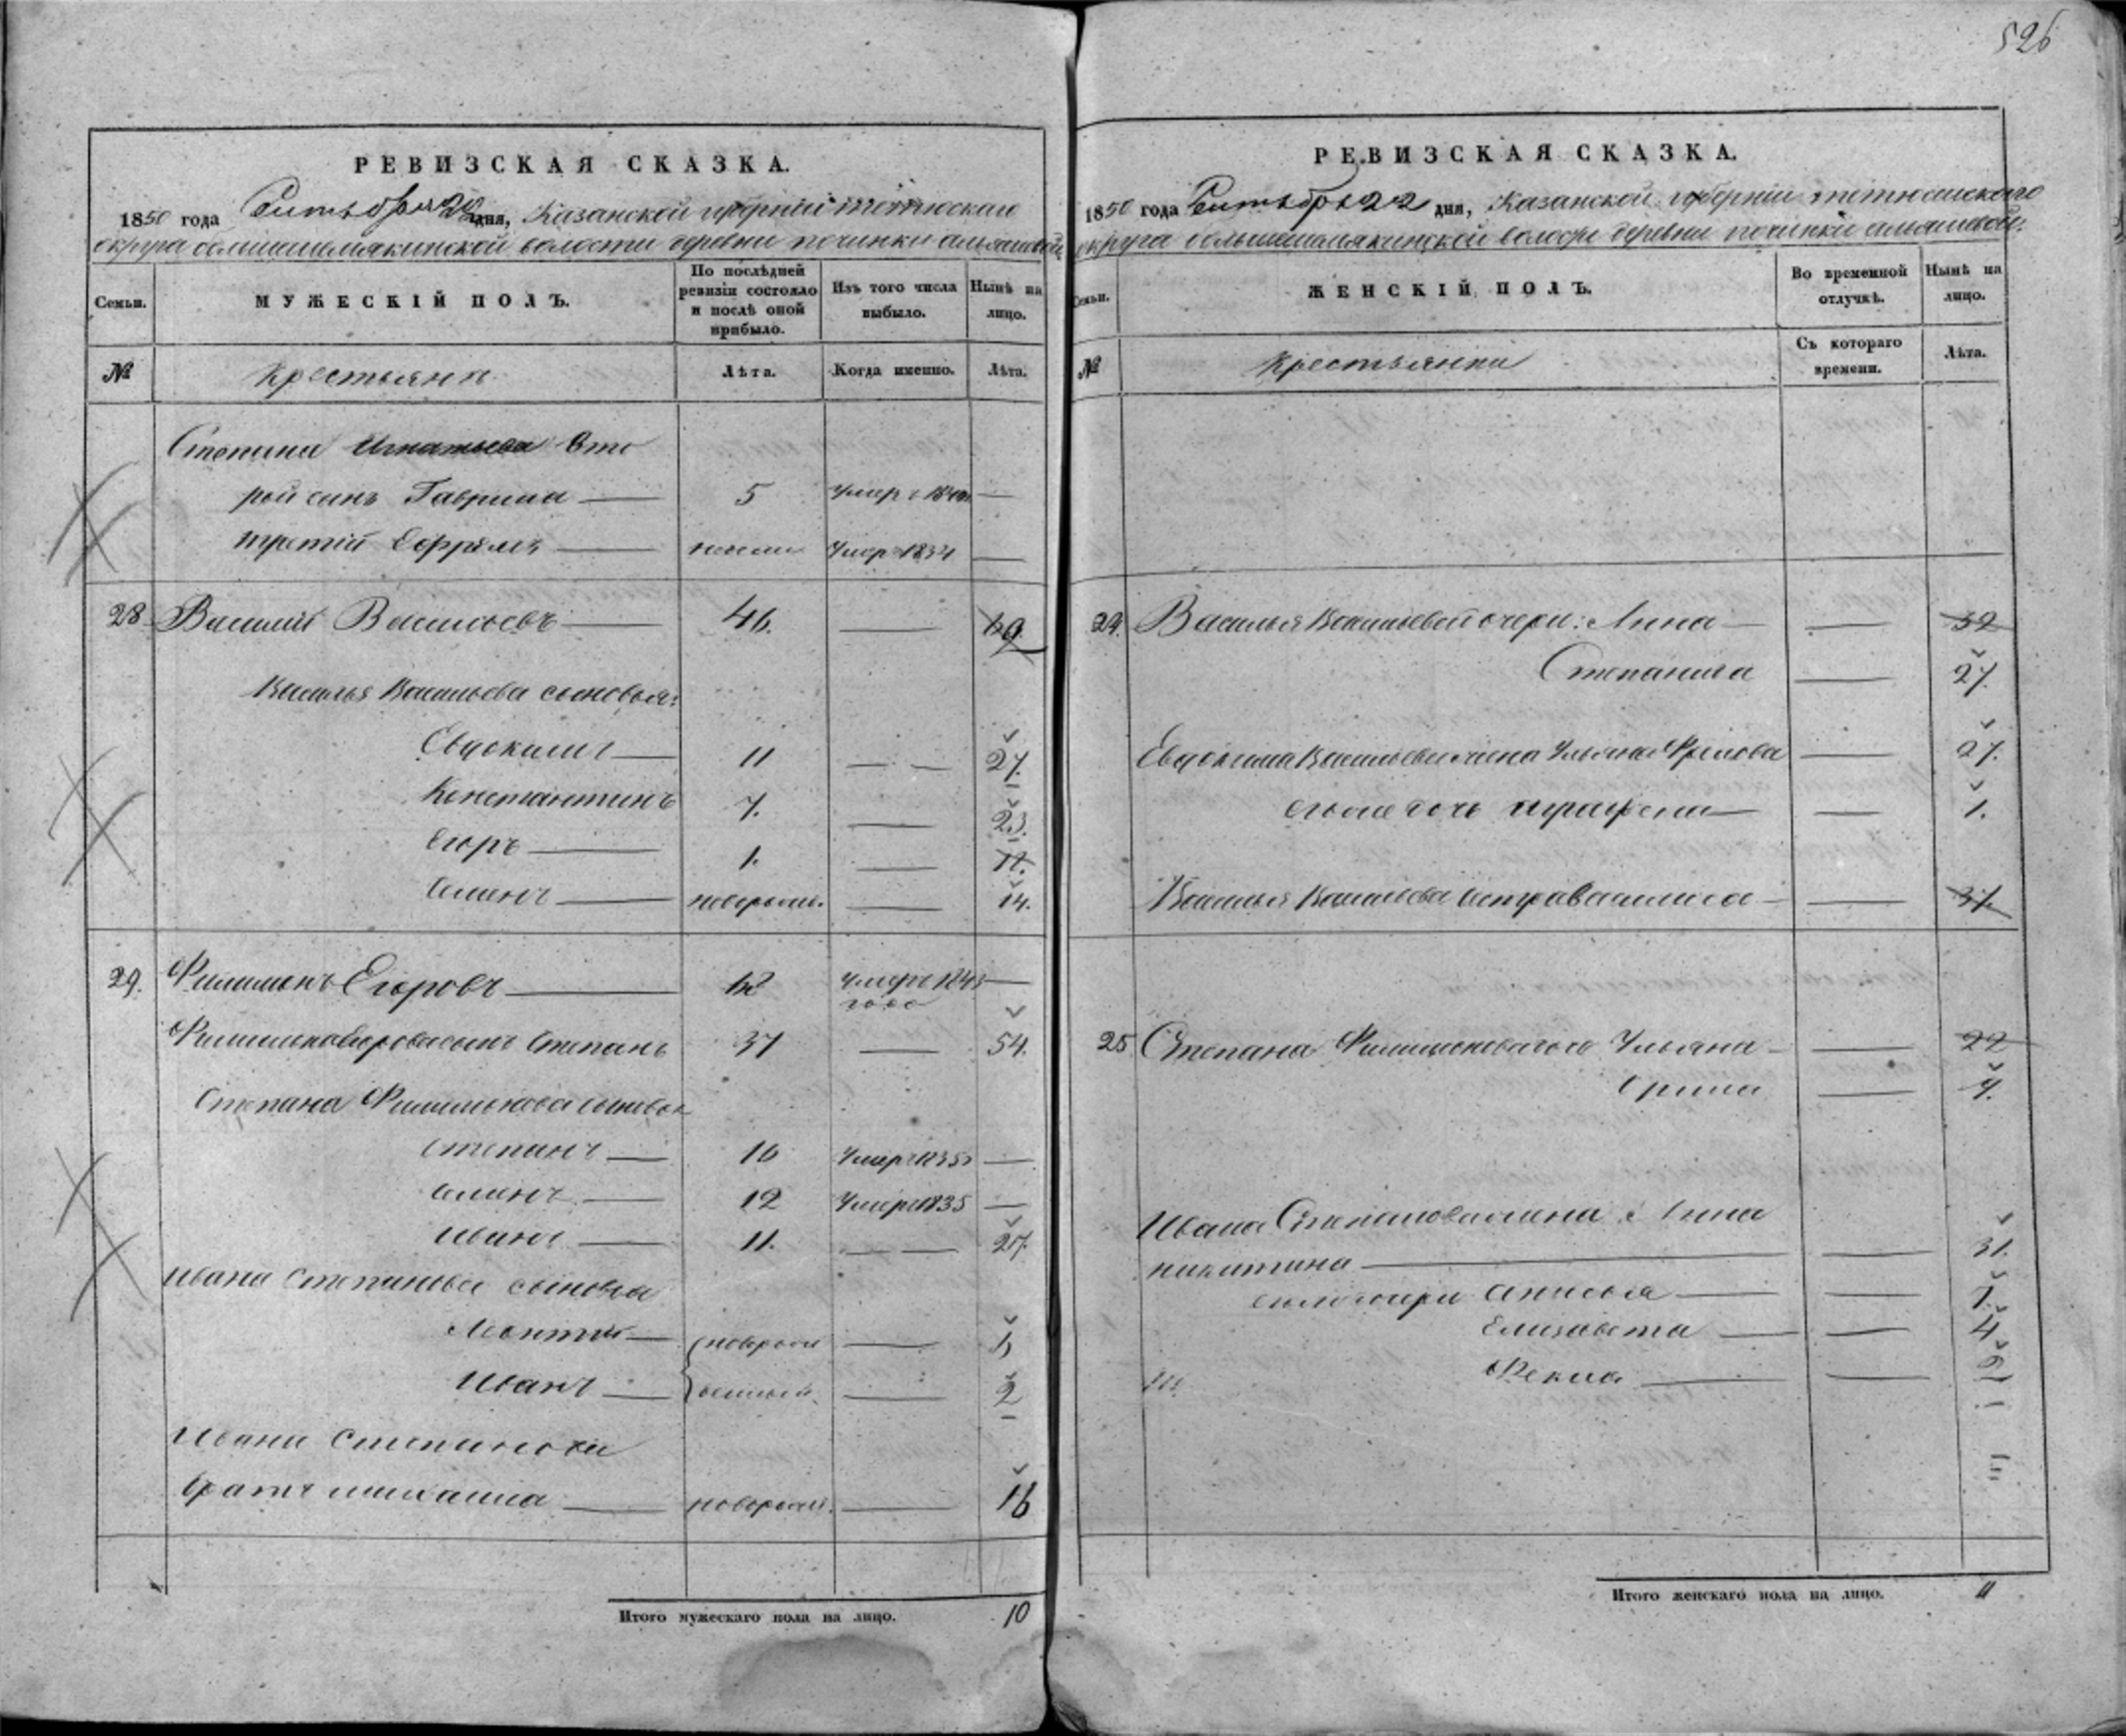 526
РЕВИЗСКАЯ СКАЗКА.
1850 года Сентября 22 дня, Казанской губернiи тетюскаго
округа большешемякинской волости деревни починки
Семьи.
МУЖЕСКІЙ ПОЛЪ.
По послѣдней ревизіи состояло и послѣ оной прибыло.
Изъ того числа выбыло.
Нынѣ на лицо.
№
крестьяни
Лѣта.
Когда именно.
Лѣта.
Степана Игнатьева вто
рой сынъ Гаврила 5 умеръ
третiй Ефремъ умеръ 1834
28 Василий Васильевъ 46.
Василья Васильева сыновья:
Евдокимъ 11 27.
Константинъ 7. 23.
Егоръ 1.
Семенъ новорож. 14.
29. Филимонъ Егоровъ умеръ
года
Филимона Егорова сынъ Степанъ 37 54.
Степана Филимонова сыновья
Степанъ 16 умеръ 1835
Семенъ 12 умеръ 1835
Иванъ 11. 27.
Ивана Степанова сыновья
Леонтий новорож 5
Иванъ денный 2
Ивана Степанова
братъ михаила новорож. 16
Итого мужескаго пола на лицо. 10
РЕВИЗСКАЯ СКАЗКА.
1850 года Сентября 22 дня, Казанской губернiи тетюшскаго
округа большешемякинской волости деревни починки
Семьи.
ЖЕНСКІЙ ПОЛЪ.
Во временной отлучкѣ.
Нынѣ на лицо.
№
крестьянки
Съ котораго времени.
Лѣта.
24. Василья Васильева дочери: Анна 32
Степанида 27.
Евдокима Васильева жена Ульяна Фролова 27.
его же дочь аграфена 1.
Василья Васильева сестра Василиса 37.
25 Степана Филимонова Ульяна 22
Орина
Ивана Степанова жена Анна
никитина 31.
его же дочери Анисья 7.
Елизавета 4
Фекла
Итого женскаго пола на лицо. 11